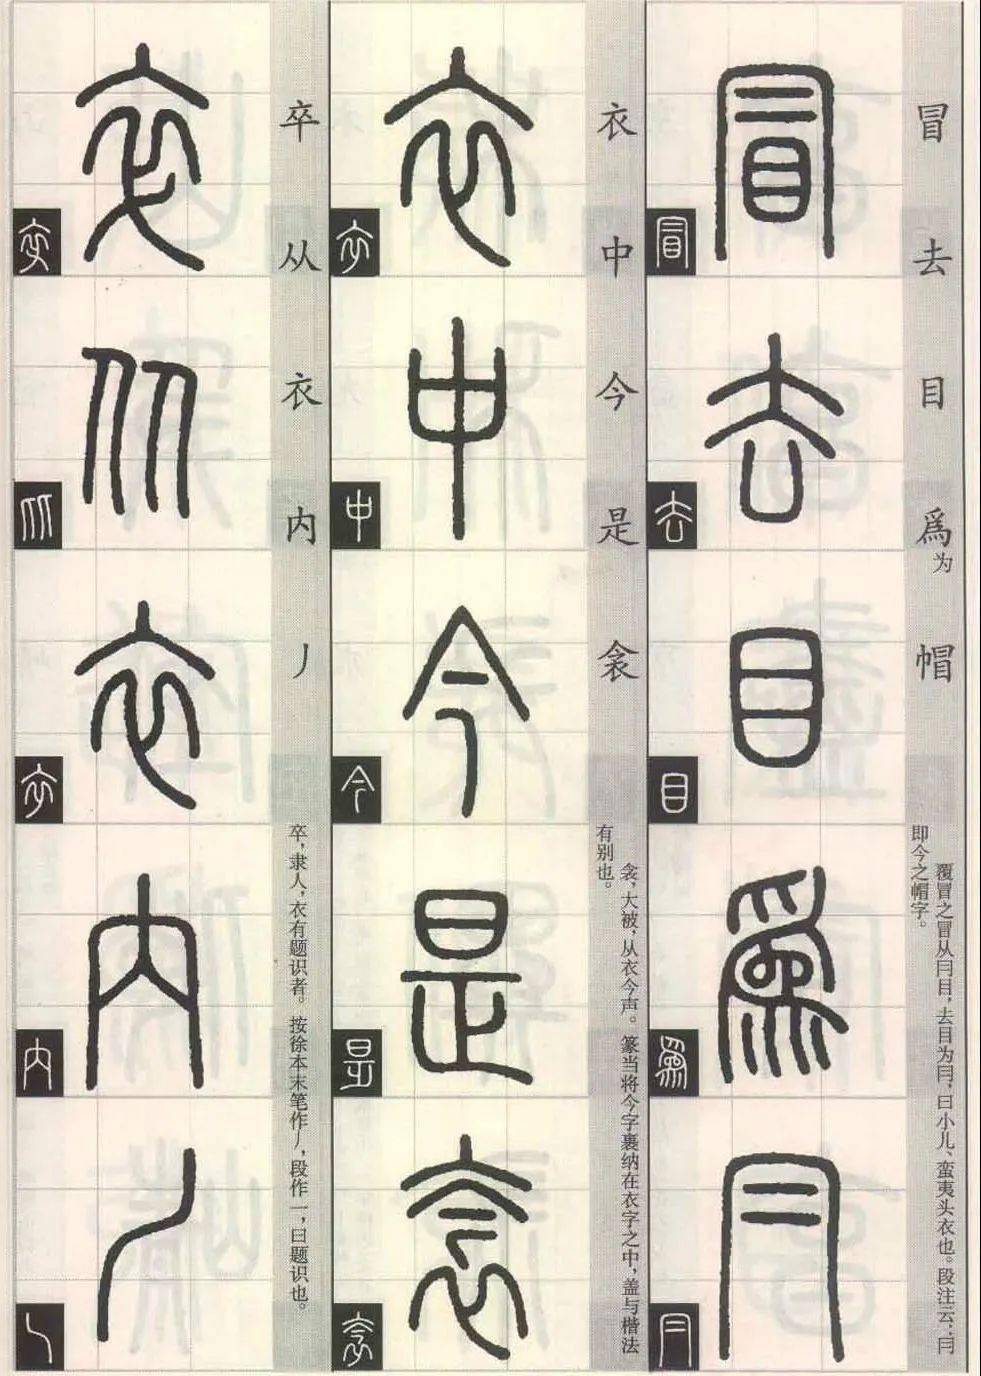 冒去目爲帽
为
冒去目爲冃
覆冒之冒从冃目，去目为冃，曰小儿、蛮夷头衣也。段注云：冃
即今之帽字。
衣中今是衾
衣中今是衾
衾，大被，从衣今声。篆当将今字裹纳在衣字之中，盖与楷法
有别也。
卒从衣内丿
卒从衣内丿
卒，隶人，衣有题识者。按徐本末笔作丿，段作一，曰题识也。